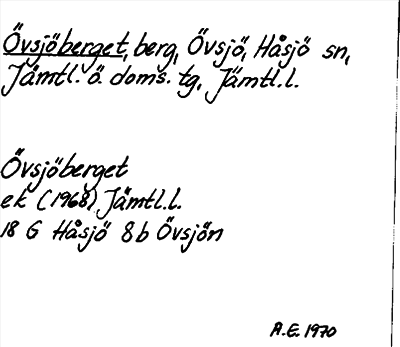 Övsjöberget, berg, Övsjö, Håsjö sn,
Jämtl. ö doms. tg, Jämtl.l.
Övsjöberget
ek (1968) Jämtl.l.
18 G Håsjö 8b Övsjön
A.E. 1970